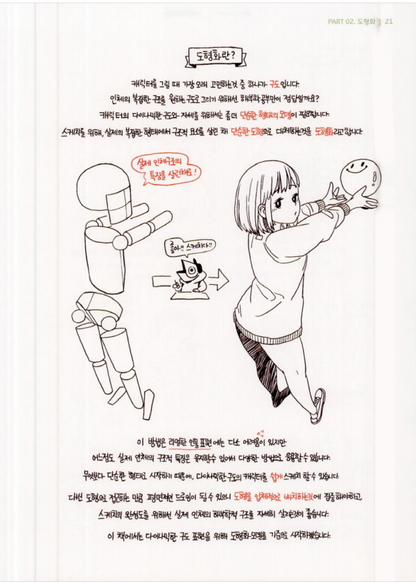 PART 02. 도형화 | 21
도형화란?
캐릭터를 그릴 때 가장 오래 고민하는것 중 하나가 구도입니다.
인체의 복잡한 구조를 원하는 구도로 그리기 위해선 해부학 공부만이 정답일까요?
캐릭터의 다이나믹한 구도와 자세를 위해서는 좀 더 단순한 형태의 모델이 필요합니다.
스케치를 위해, 실제의 복잡한 형태에서 구조적 요소를 살린 채 단순한 도형으로 대체하는것을 도형화라고 합니다.
실제 인체구조의
특징을 살려줘요!
좋아!! 스케치다!!
이 방법은 리얼한 인물 표현에는 다소 어려움이 있지만
어느정도 실제 인체의 구조적 특징은 유지할수 있어서 다양한 방법으로 응용할수 있습니다.
무엇보다 단순한 형태로 시작하기 때문에, 다이나믹한 구도의 캐릭터를 쉽게 스케치 할 수 있습니다.
다만 도형으로 접근하는 만큼 평면적인 드로잉이 될 수 있으니 도형을 입체적으로 배치하는것에 집중해야하고,
스케치의 완성도를 위해선 실제 인체의 해부학적 구조를 자세히 살피는것이 좋습니다.
이 책에서는 다이나믹한 구도 표현을 위해 도형화 모델을 기준으로 시작하겠습니다.